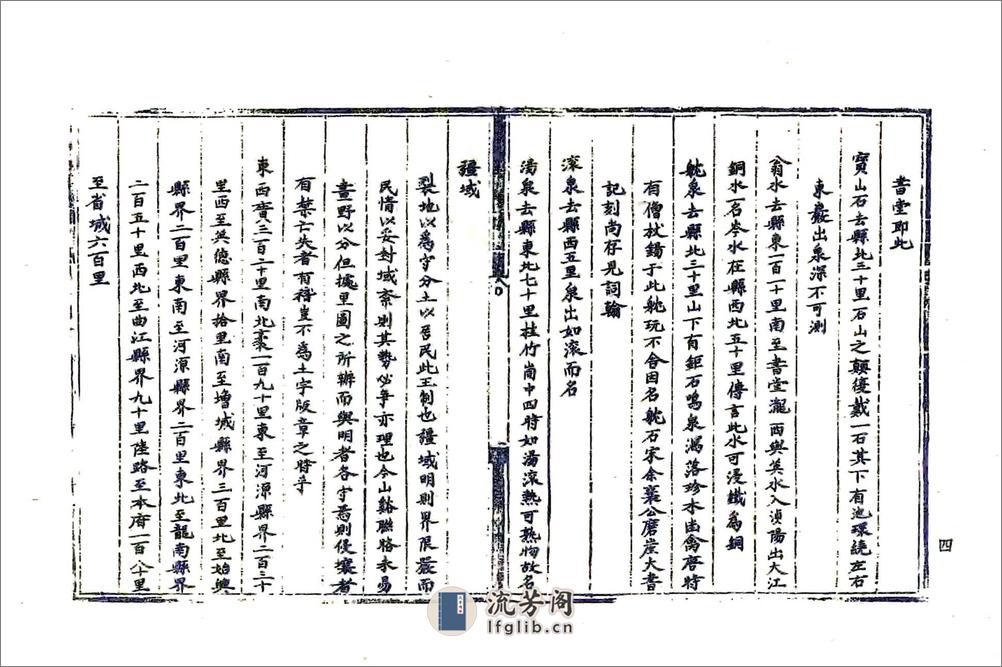 書堂即此
寶山石去縣北三十里一石山之顛復戴一石其下有池環繞左右
東巖出泉深不可測
翁水去縣東一百一十里南至書堂瀧西與英水入浈陽出大江
銅水一名岑水在縣西北五十里傳言此水可浸鐵為銅
躭泉去縣北三十里山下有鉅石鳴泉瀉落珍木幽禽唐時
有僧杖錫于此躭玩不舍因名躭石宋余襄公磨崖大書
記刻尚存見詞翰
滾泉去縣西五里泉出如滾而名
湯泉去縣東北七十里桂竹崗中四時如湯滾熱可熟物故名
疆域
裂地以為守分土以居民此王制也疆域明則界限嚴而
民情以妥封域紊則其勢必爭亦理也今山谿聯絡未易
畫野以分但據里圖之所辦而與明者各守焉則侵壤者
有禁亡失者有稽豈不為土宇版章之時乎
東西廣三百二十里南北袤一百九十里東至河源縣界二百三十
里西至英德縣界拾里南至增城縣界三百里北至始興
縣界二百里東南至河源縣界二百里東北至龍南縣界
二百五十里西北至曲江縣界九十里陸路至本府一百八十里
至省城六百里
四
流芳阁
lfglib.cn